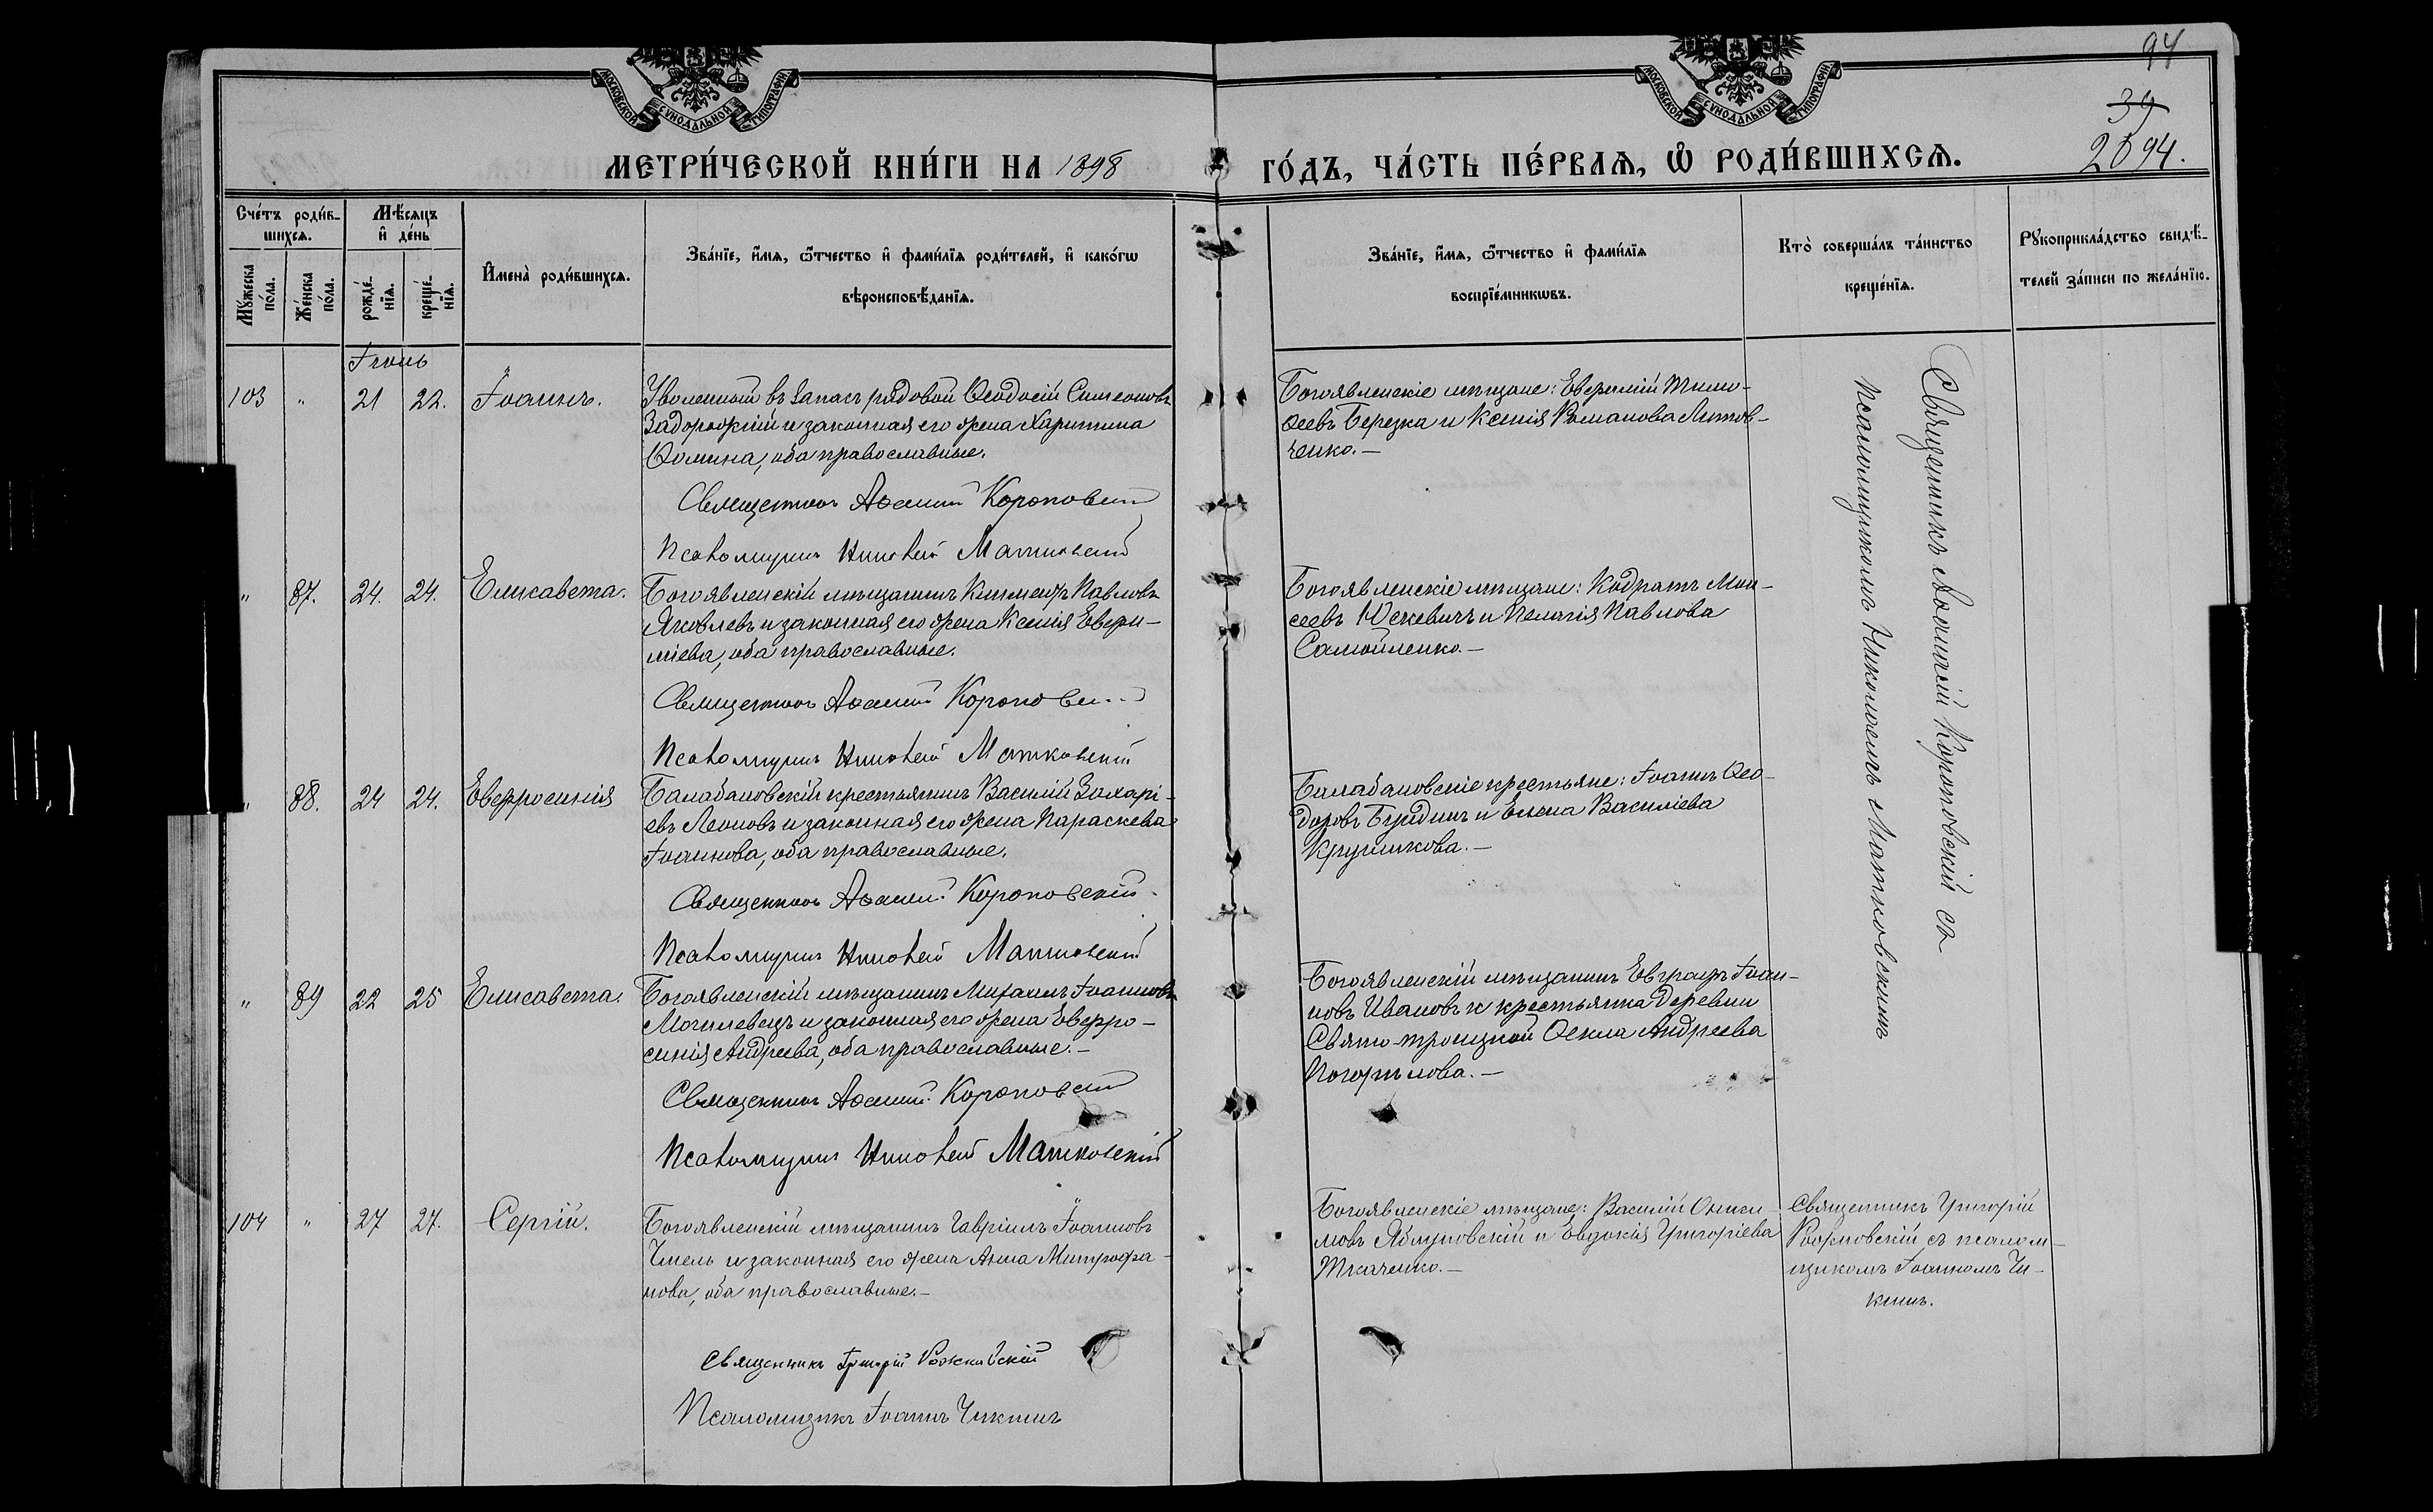 94
39
2094.
МОСКОВСКОЙ СУНОДАЛЬНОЙ ТИПОГРАФІИ
МОСКОВСКОЙ СУНОДАЛЬНОЙ ТИПОГРАФІИ
МЕТРИ́ЧЕСКОЙ КНИ́ГИ НА 1898
ГО́ДЪ, ЧА́СТЬ ПЕ́РВАѦ, Ѡ҆ РОДИ́ВШИХСѦ.
Сче́тъ роди́в-
шихсѧ.
Мꙋ́жеска по́ла.
Же́нска по́ла.
Мѣ́сѧцъ
и҆ де́нь
рожде́-
нїѧ.
креще́-
нїѧ.
И҆мена̀ роди́вшихсѧ.
Зва́нїе, и҆́мѧ, ѻ҆́тчество и҆ фами́лїѧ роди́телей, и҆ како́гѡ
вѣроисповѣ́данїѧ.
Зва́нїе, и҆́мѧ, ѻ҆́тчество и҆ фами́лїѧ
воспрїе́мникѡвъ.
Кто̀ соверша́лъ та́инство
креще́нїѧ.
Рꙋкоприкла́дство свидѣ́-
телей за́писи по жела́нїю.
Іюнь
103 " 21 22. Іоаннъ.
Уволенный въ запасъ рядовой Ѳеодосій Симеоновъ
Задорожній и законная его жена Харитина
Ѳомина, оба православные.
Священникъ Аѳанасій Короповскій
Псаломщикъ Николай Матковскій
Богоявленскіе мѣщане: Евѳимій Тимо-
ѳеевъ Березка и Ксенія Романова Литов-
ченко.—
Священникъ Аѳанасій Короповскій съ
псаломщикомъ Николаемъ Матковскимъ
" 87. 24. 24. Елисавета.
Богоявленскій мѣщанинъ Климентъ Павловъ
Яковлевъ и законная его жена Ксенія Евѳи-
міева, оба православные.
Священникъ Аѳанасій Короповскій
Псаломщикъ Николай Матковскій
Богоявленскіе мѣщане: Кодратъ Мои-
сеевъ Юскевичъ и Пелагія Павлова
Самойленко.—
" 88. 24 24. Евфросинія
Балабановскій крестьянинъ Василій Захарі-
евъ Леоновъ и законная его жена Параскева
Іоаннова, оба православные.
Священникъ Аѳанасій Короповскій
Псаломщикъ Николай Матковскій
Балабановскіе крестьяне: Іоаннъ Ѳео-
доровъ и Елена Василіева
Кругликова.—
" 89 22 25 Елисавета.
Богоявленскій мѣщанинъ Михаилъ Іоанновъ
Могилевецъ и законная его жена Евфро-
синія Андреева, оба православные.—
Священникъ Аѳанасій Короповскій
Псаломщикъ Николай Матковскій
Богоявленскій мѣщанинъ Евграфъ Іоан-
новъ Ивановъ и крестьянка деревни
Свято-троицкой Ѳекла Андреева
Погорѣлова.—
104 " 27 27. Сергій.
Богоявленскій мѣщанинъ Гавріилъ Іоанновъ
Чмель и законная его жена Анна Митрофа-
нова, оба православные.—
Священникъ Григорій Рожновскій
Псаломщикъ Іоаннъ Чикинъ
Богоявленскіе мѣщане: Василій Ониси-
мовъ Яблуновскій и Евдокія Григоріева
Ткаченко.—
Священникъ Григорій
Рожновскій съ псалом-
щикомъ Іоанномъ Чи-
кинъ.